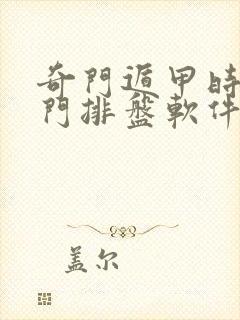 奇門遁甲時
門排盤軟件
盖尔